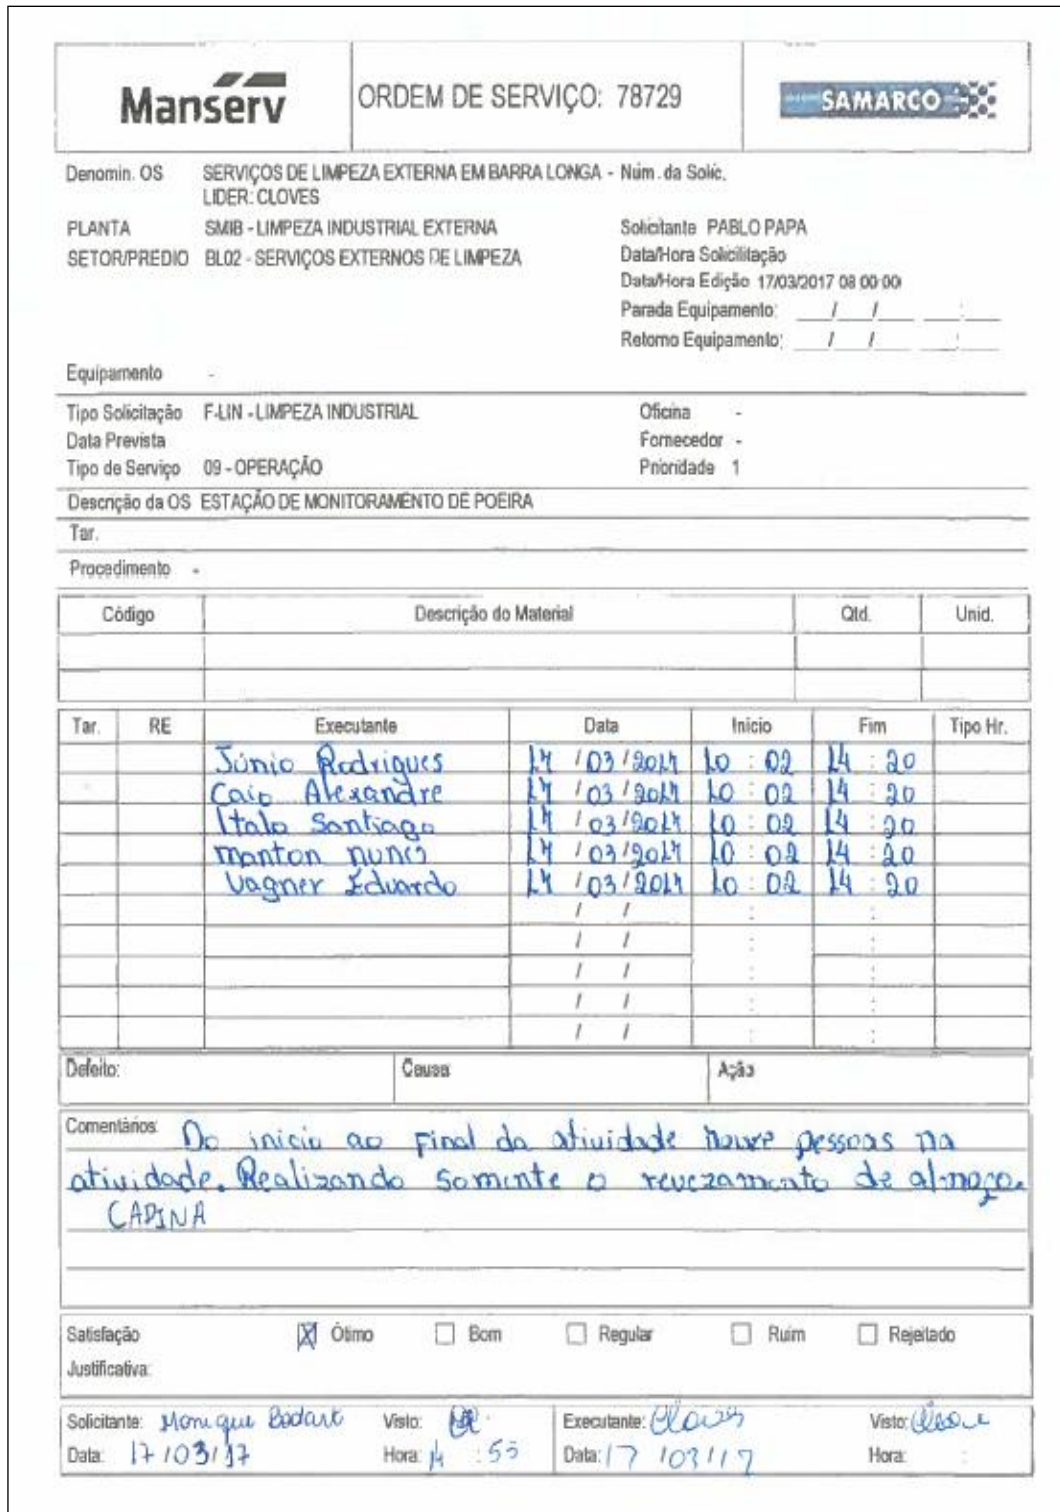 Manserv
ORDEM DE SERVIÇO: 78729
SAMARCO
Denomin. OS SERVIÇOS DE LIMPEZA EXTERNA EM BARRA LONGA - Núm. da Solic.
LIDER: CLOVES
PLANTA SMIB - LIMPEZA INDUSTRIAL EXTERNA Solicitante PABLO PAPA
SETOR/PREDIO BL02 - SERVIÇOS EXTERNOS DE LIMPEZA Data/Hora Solicilitação
Data/Hora Edição 17/03/2017 08:00:00
Parada Equipamento: / / :
Retorno Equipamento: / / :
Equipamento -
Tipo Solicitação F-LIN - LIMPEZA INDUSTRIAL Oficina -
Data Prevista Fornecedor -
Tipo de Serviço 09 - OPERAÇÃO Prioridade 1
Descrição da OS ESTAÇÃO DE MONITORAMENTO DE POEIRA
Tar.
Procedimento -
Código Descrição do Material Qtd. Unid.
Tar. RE Executante Data Inicio Fim Tipo Hr.
Júnio Rodrigues 17 / 03 / 2017 10 : 02 14 : 20
Caio Alexandre 17 / 03 / 2017 10 : 02 14 : 20
Italo Santiago 17 / 03 / 2017 10 : 02 14 : 20
manton nunes 17 / 03 / 2017 10 : 02 14 : 20
Vagner Eduardo 17 / 03 / 2017 10 : 02 14 : 20
/ / : :
/ / : :
/ / : :
/ / : :
/ / : :
Defeito: Causa Ação
Comentários: Do inicio ao Final da atividade houve pessoas na
atividade. Realizando somente o revezamento de almoço.
CAPINA
Satisfação X Ótimo Bom Regular Ruim Rejeitado
Justificativa:
Solicitante: Monique Bodart Visto: Executante: Cloves Visto:
Data: 17/03/17 Hora: 14 : 55 Data: 17/03/17 Hora: :